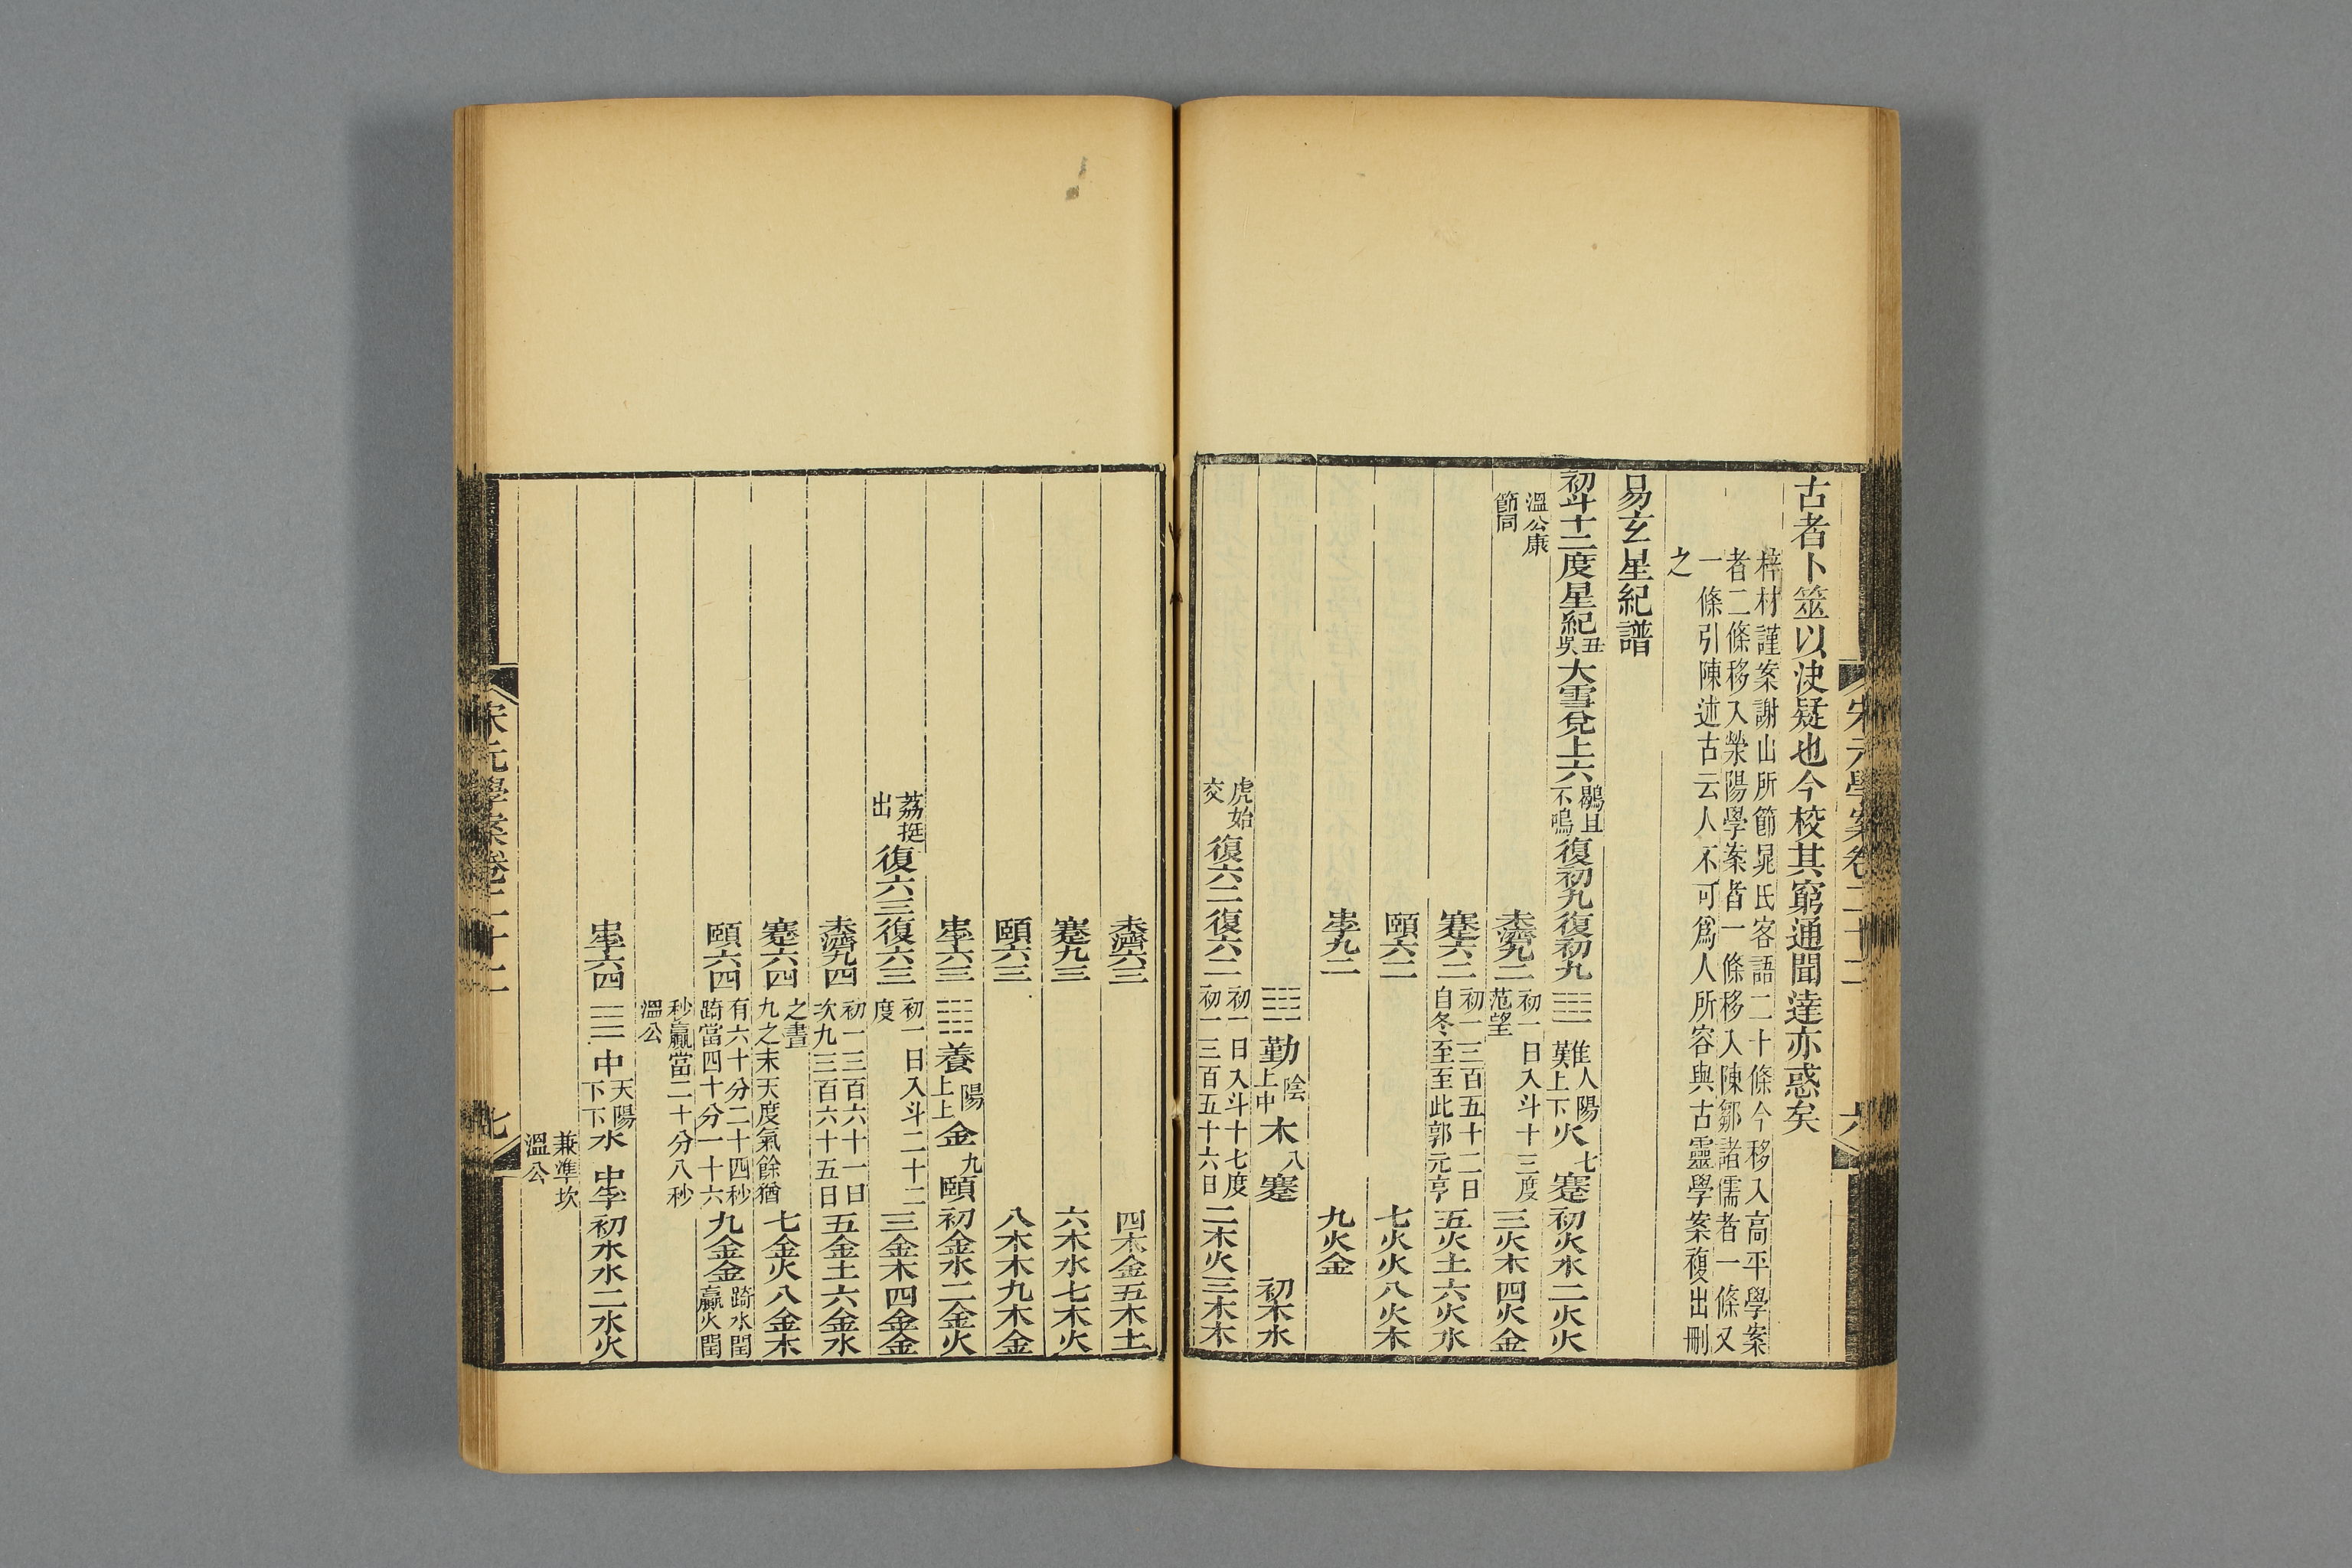 古者卜筮以決疑也今校其窮通聞達亦惑矣
梓材謹案謝山所節晁氏客語二十條今移入高平學案
者二條移入滎陽學案者一條移入陳鄒諸儒者一條又
一條引陳述古云人不可爲人所容與古靈學案複出刪
之
易玄星紀譜
初斗十二度星紀丑吳大雪兌上六鶡旦不鳴復初九復初九 難人陽上下火七蹇初火水二火火
溫公康節同 未濟九二初一日入斗十三度范望三火木四火金
蹇六二初一三百五十二日自冬至至此郭元亨五火土六火水
頤六二 七火火八火木
中孚九二 九火金
勤陰上中木八蹇 初木水
虎始交復六二復六二初一日入斗十七度初一三百五十六日二木火三木木
未濟六三 四木金五木土
蹇九三 六木水七木火
頤六三 八木木九木金
中孚六三 養陽上上金九頤初金水二金火
荔挺出復六三復六三初一日入斗二十二度三金木四金金
未濟九四初一三百六十一日次九三百六十五日五金土六金水
蹇六四之晝九之末天度氣餘猶七金火八金木
頤六四有六十分二十四秒踦當四十分一十六九金金踦水閏贏火閏
秒贏當二十分八秒溫公
中孚六四 中天陽下下水 中孚初水水二水火
兼準坎溫公
宋元學案卷二十二
六
宋元學案卷二十二
七